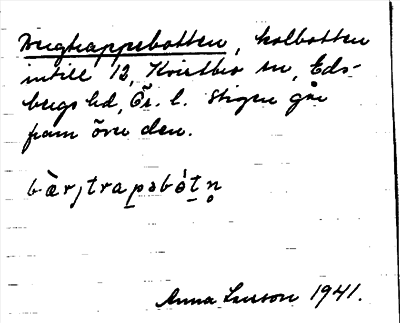 Bergtrappebotten, kolbotten
intill 12, Kvistbro sn, Eds-
bergs hd, Ör. l. Stigen går
fram över den.
bæ̀rjtrapəbótn̥
Anna Larsson 1941.